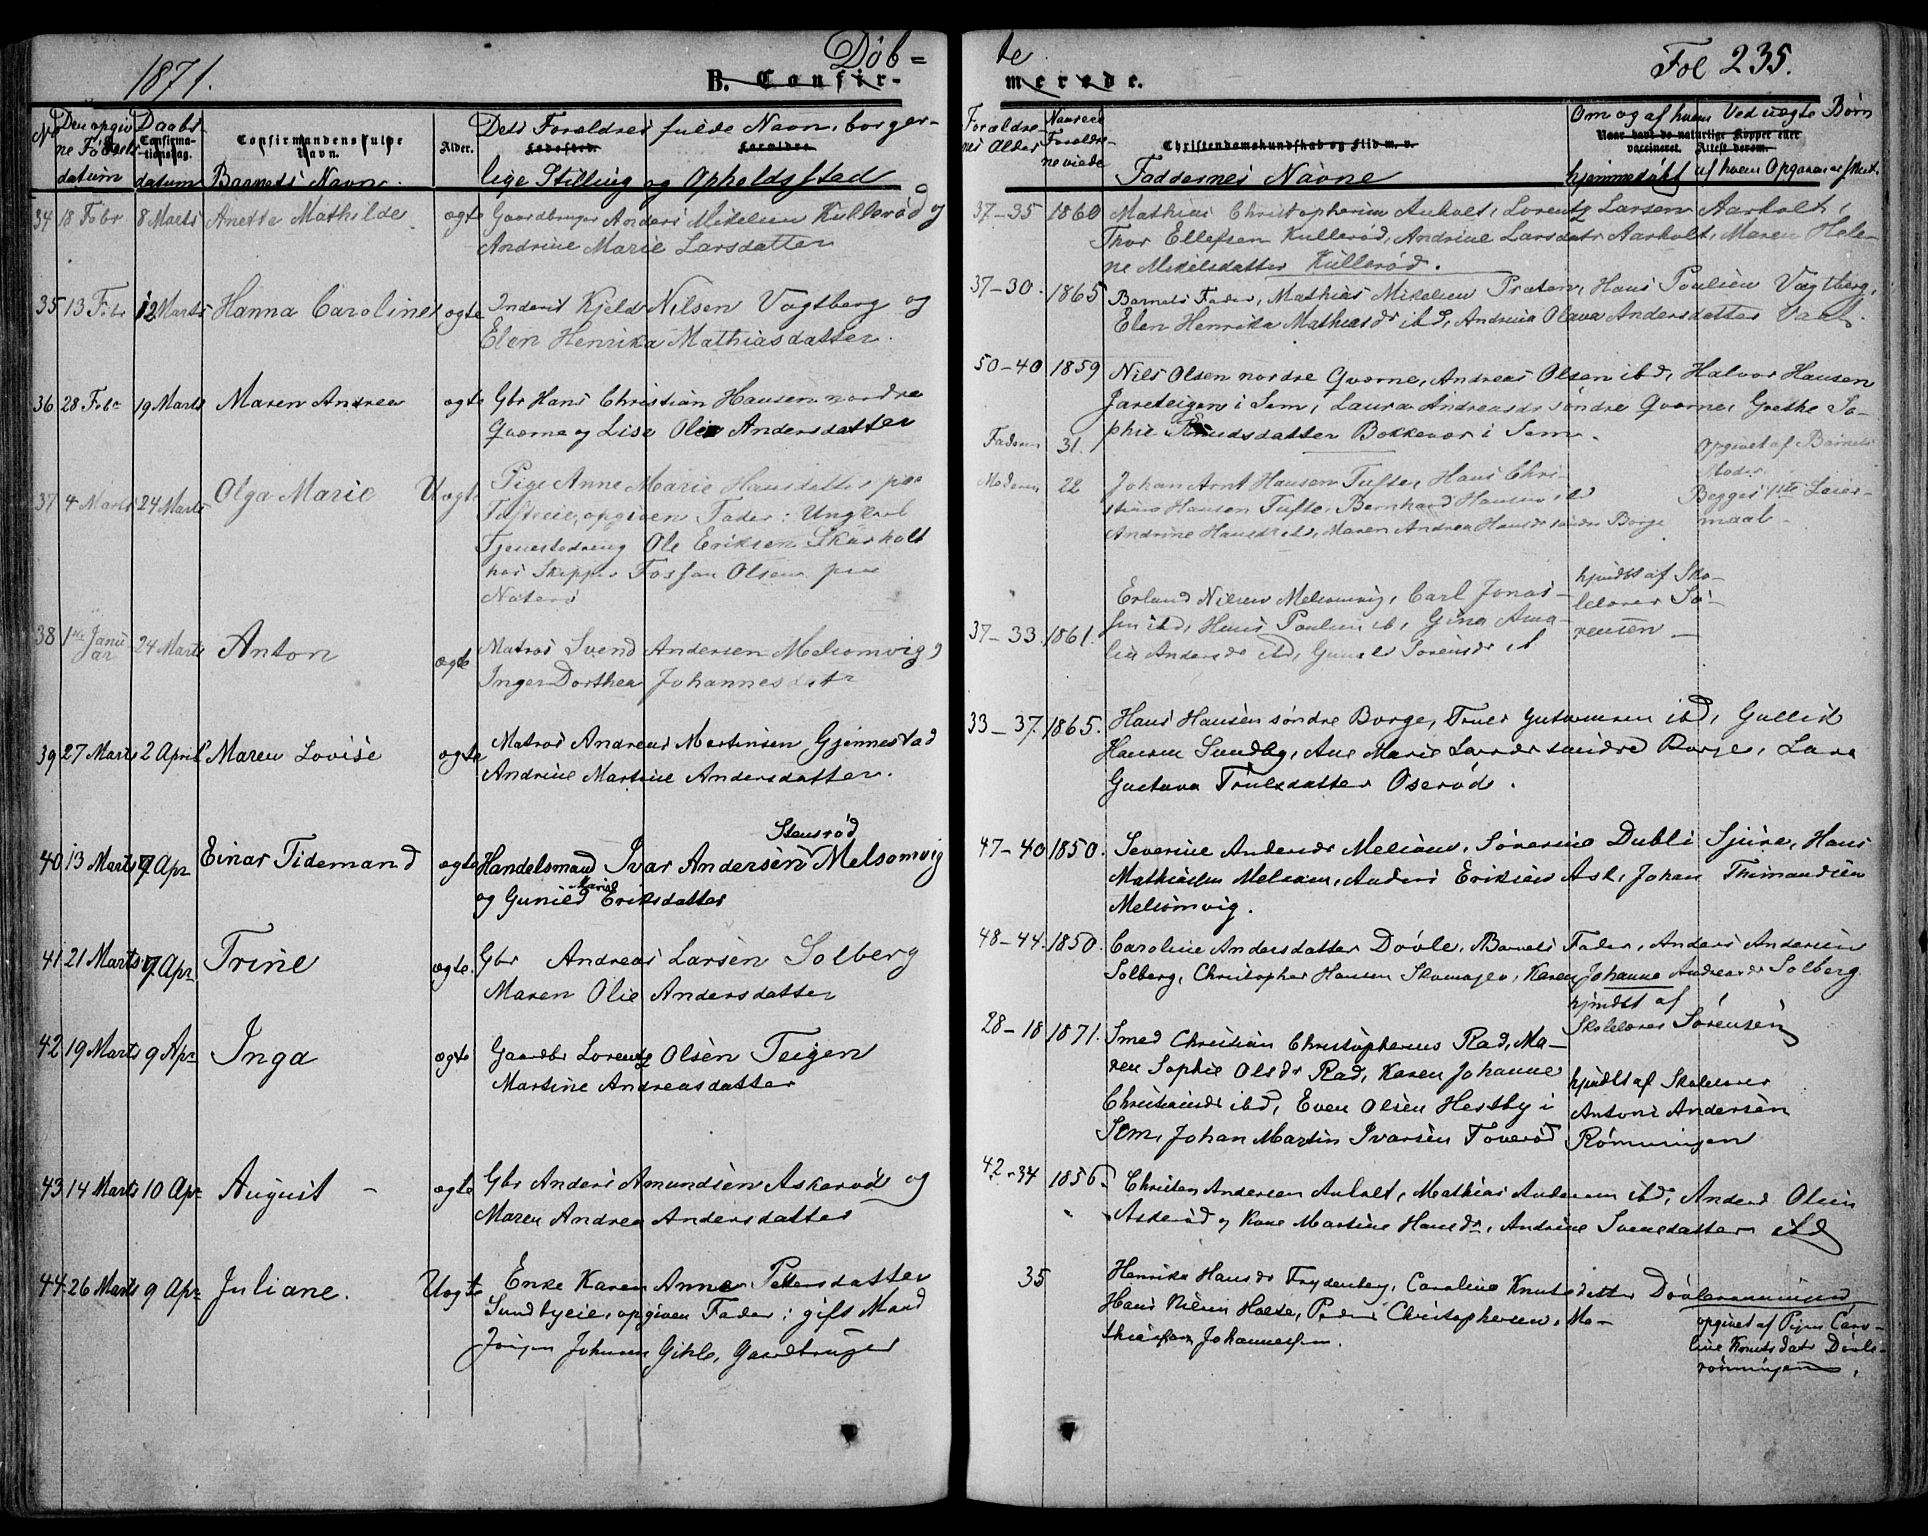 1871.
Döb=
te
Fol 235.
B. Confir-
merede.
No
Den opgiv
ne Födsels
datum
Daabs-
datum
Confirma-
tionsdag.
Confirmandens fulde
Navn.
Barnets Navn.
Alder.
Dets Forældres fulde Navn, borger-
Fødested.
Forældre.
lige Stilling og Opholdssted
Forældre-
nes Alder
Naar ere
Foræld-
ne viede
Christendomskundskab og Flid m. v.
Faddernes Navne
Om og af hvem
Naar havt de naturlige Kopper eller
vaccineret.
Attest derom.
hjemmedøbt
Ved uægte Børn
af hvem Opgaven er skeet.
34 18 Febr 8 Marts Anette Mathilde ægte Gaardbruger Anders Mikelsen Kullerød og
Andrine Marie Larsdatter
37-35 1860 Mathias Christophersen Auholt, Lorentz Larsen Aarholt,
Thor Ellefsen Kullerød, Andrine Larsdatr Aarholt, Maren Hele-
ne Mikelsdatter Kullerød.
35 13 Febr 12 Marts Hanna Caroline ægte Inderst Kjeld Nilsen Vægtberg og
Elen Henrika Mathiasdatter.
37-30. 1865 Barnets Fader, Mathias Mikelsen Præsten, Hans Poulsen Vægtberg,
Elen Henrika Mathiasdr ibd, Andrea Olava Andersdatter Vaal.
36 28 Febr 19 Marts Maren Andrea ægte Gbr Hans Christian Hansen nordre
Qværne og Lise Olie Andersdatter
50-40 1859 Nils Olsen nordre Qværne, Andreas Olsen ibd, Halvor Hansen
Jareteigen i Sem, Laura Andreasdr söndre Qværne, Grethe So-
phie Knudsdatter Bakkevar i Sem.
37 4 Marts 24 Marts Olga Marie Uægte Pige Anne Marie Hansdatter paa
Tufteeie, opgiven Fader: Ungkarl
Tjenestedreng Ole Eriksen Skarholt
hos Skipper Olsen paa
Nøterø
Faderen 31.
Moderen 22
Johan Arnt Hansen Tufte, Hans Chri-
stian Hansen Tufte, Bernhard Hansen ibd
Andrine Hansdr ibd, Maren Andrea Hansdr söndre Borge
Opgivet af Barnets
Moder.
Begges 1ste Leier-
maal.
38 1ste Janu
ar 24 Marts Anton ægte Matros Svend Andersen Melsomvig,
Inger Dorthea Johannesdatr
37-33. 1861. Erland Nilsen Melsomvig, Carl Jonas-
sen ibd, Hans Poulsen ib, Gina Ama-
lia Andersdr ibd, Sörensdr ib
hjmdbt af Sko-
lelærer Sö-
rensen
39 27 Marts 2 April Maren Lovise ægte Matros Andreas Martinsen Gjennestad
Andrine Martine Andersdatter.
33-37. 1865. Hans Hansen söndre Borge, Truls Gutormsen ibd, Gullid
Hansen Sundby, Ane Marie Larsdr söndre Borge, Lara
Gustava Trulsdatter Oserød.
40 13 Marts 7 Apr Einar Tidemand ægte Handelsmand Ivar Andersen Stensrød Melsomvig
og Gunild Marie Eriksdatter
47-40 1850. Severine Andersdr Melsom, Sörine Dubli Sjuve, Hans
Mathiasen Melsom, Anders Eriksen Ask, Johan
Melsomvig.
41. 21 Marts 7 Apr Trine ægte. Gbr Andreas Larsen Solberg
Maren Olie Andersdatter
48-44. 1850. Caroline Andersdatter Dövle, Barnets Fader, Anders Andersen
Solberg, Christopher Hansen Skomager, Karen Johanne Andreasdr Solberg
hjmdbt af
Skolelærer Sörensen
42 19 Marts 9 Apr Inga ægte Gaardbr Lorentz Olsen Teigen
Martine Andreasdatter
28-18 1871. Smed Christian Christophersen Rad, Ma-
ren Sophie Olsdr Rad, Karen Johanne
Christiansdr ibd, Even Olsen Hestby i
Sem, Johan Martin Ivarsen Toverød
hjmdbt af Skolelærer
Antoni Andersen
Rømningen
43 14 Marts 10 Apr August ægte Gbr Anders Amundsen Askerød og
Maren Andrea Andersdatter
42-34 1856. Christen Andersen Auholt, Mathias Andersen ibd, Anders Olsen
Askerød og Kone Martine Hansdr, Andrine Svensdatter ibd
44. 26 Marts 9 Apr Juliane. Uægte Enke Karen Anne Pettersdatter
Sundbyeie, opgiven Fader: gift Mand
Jörgen Johnsen Gihle, Gaardbruger
35 Henrika Hansdr Frydenberg, Caroline Knutsdatter Dövlerönningen
Hans Nilsen Holte, Peder Christophersen, Ma-
thias Johannessen.
opgivet af Pigen Caro-
line Knutsdatr Dövle-
rönningen.